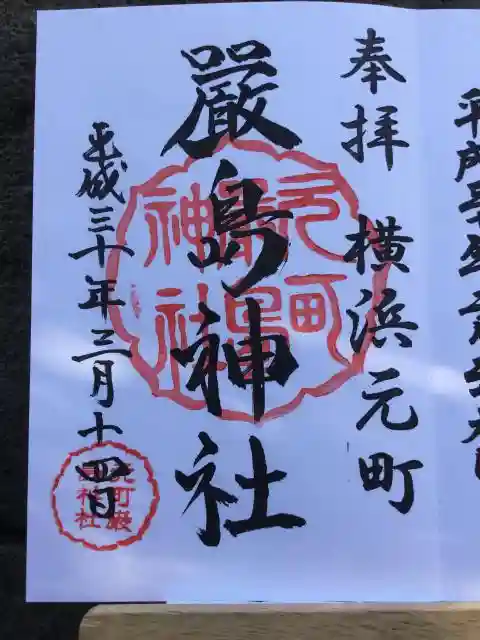 奉拝 横浜元町
嚴島神社
平成三十年三月十四日
元町
嚴島
神社
元町嚴
島神社